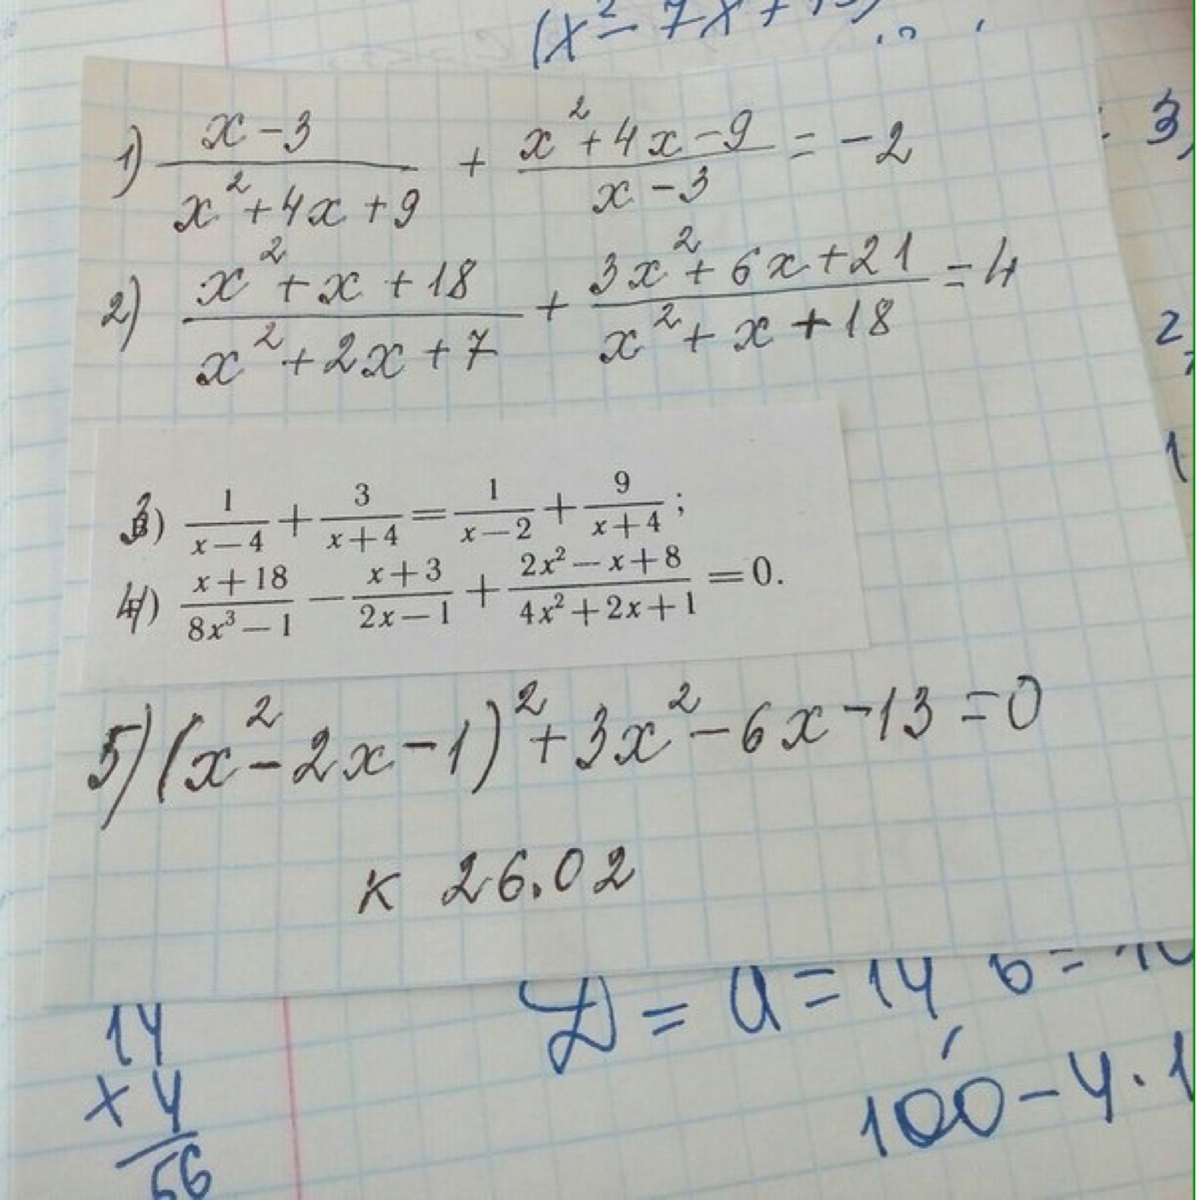 (x² - 7x + 13)
1) (x - 3)/(x² + 4x + 9) + (x² + 4x - 9)/(x - 3) = -2
3,
2) (x² + x + 18)/(x² + 2x + 7) + (3x² + 6x + 21)/(x² + x + 18) = 4
2,
3) 1/(x - 4) + 3/(x + 4) = 1/(x - 2) + 9/(x + 4);
1
4) (x + 18)/(8x³ - 1) - (x + 3)/(2x - 1) + (2x² - x + 8)/(4x² + 2x + 1) = 0.
5) (x² - 2x - 1)² + 3x² - 6x - 13 = 0
к 26.02
D = a = 14 b =
14
× 4
56
100 - 4 · 1